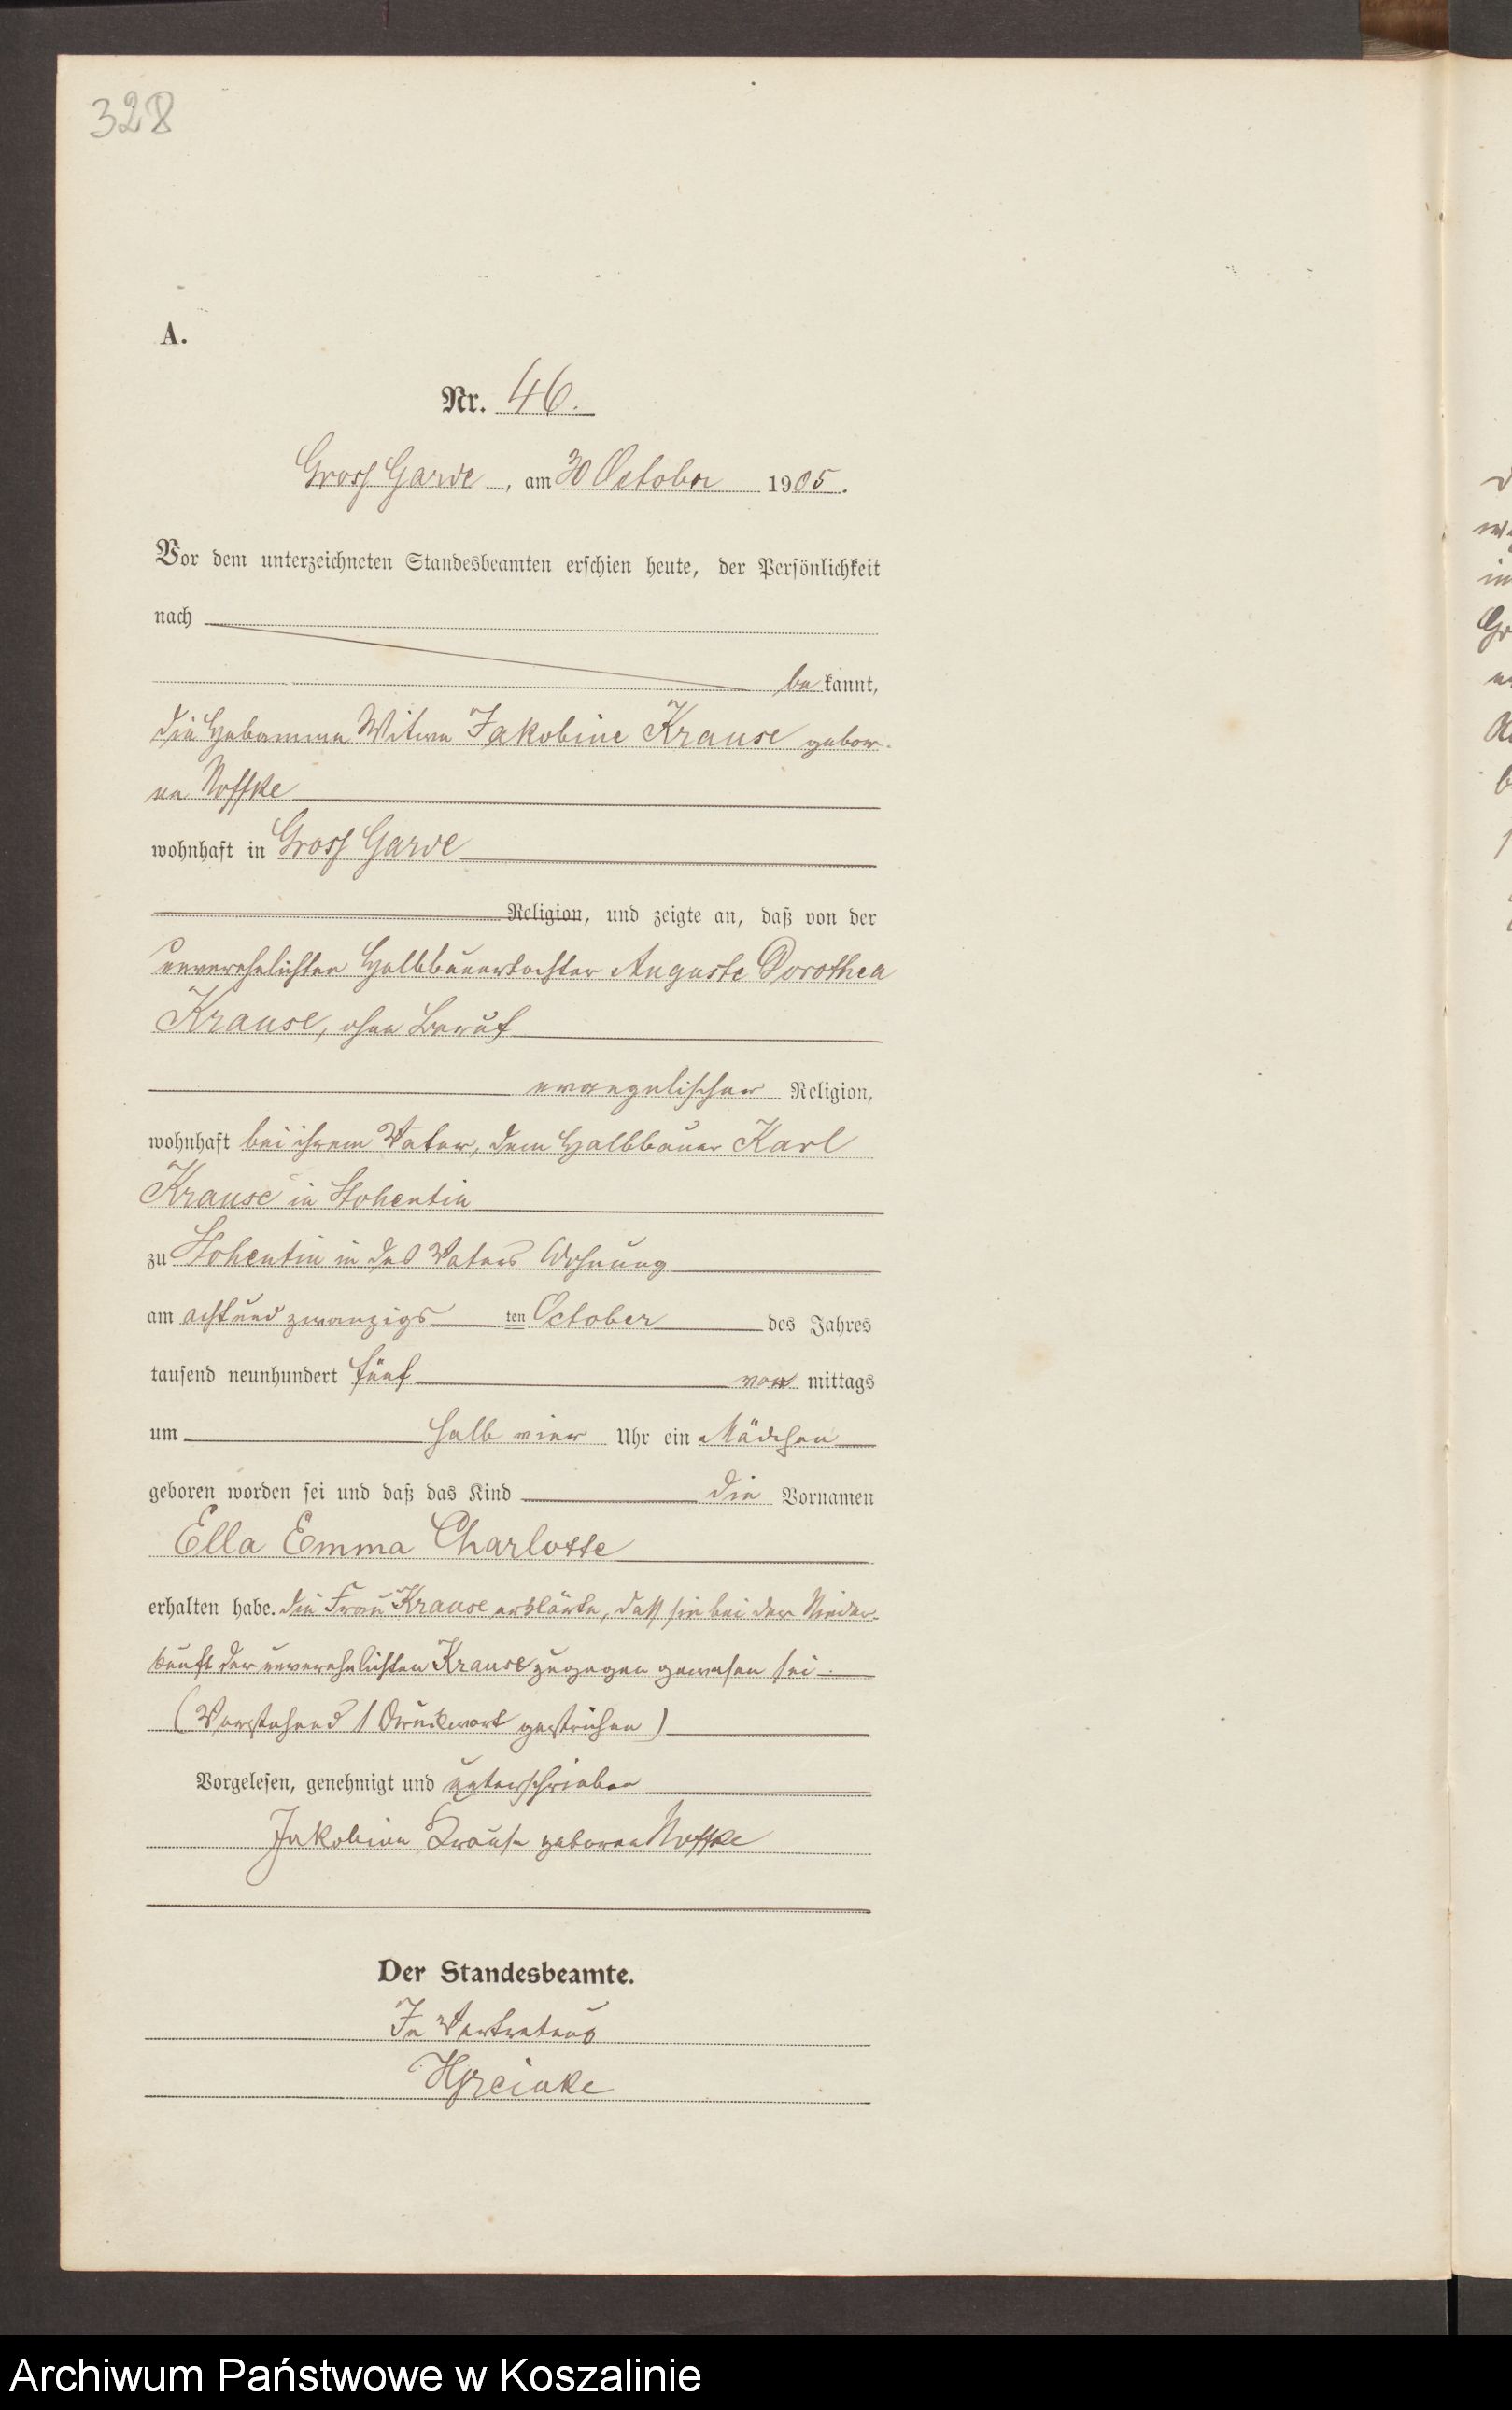 328
A.
Nr. 46.
Gross Garde, am 30 October 1905.
Vor dem unterzeichneten Standesbeamten erschien heute, der Persönlichkeit
nach
bekannt,
die Hebamme Witwe Jakobine Krause gebor-
ne Noffke
wohnhaft in Gross Garde
Religion, und zeigte an, daß von der
unverehelichten Halbbauertochter Auguste Dorothea
Krause, ohne Beruf
evangelischer Religion,
wohnhaft bei ihrem Vater, dem Halbbauer Karl
Krause in Stohentin
zu Stohentin in des Vaters Wohnung
am acht und zwanzigsten October des Jahres
tausend neunhundert fünf vormittags
um halb vier Uhr ein Mädchen
geboren worden sei und daß das Kind die Vornamen
Ella Emma Charlotte
erhalten habe. Die Frau Krause erklärte, daß sie bei der Nieder-
kunft der unverehelichten Krause zugegen gewesen sei.
(Vorstehend 1 Druckwort gestrichen)
Vorgelesen, genehmigt und unterschrieben
Jakobine Krause geborene Noffke
Der Standesbeamte.
In Vertretung
Archiwum Państwowe w Koszalinie